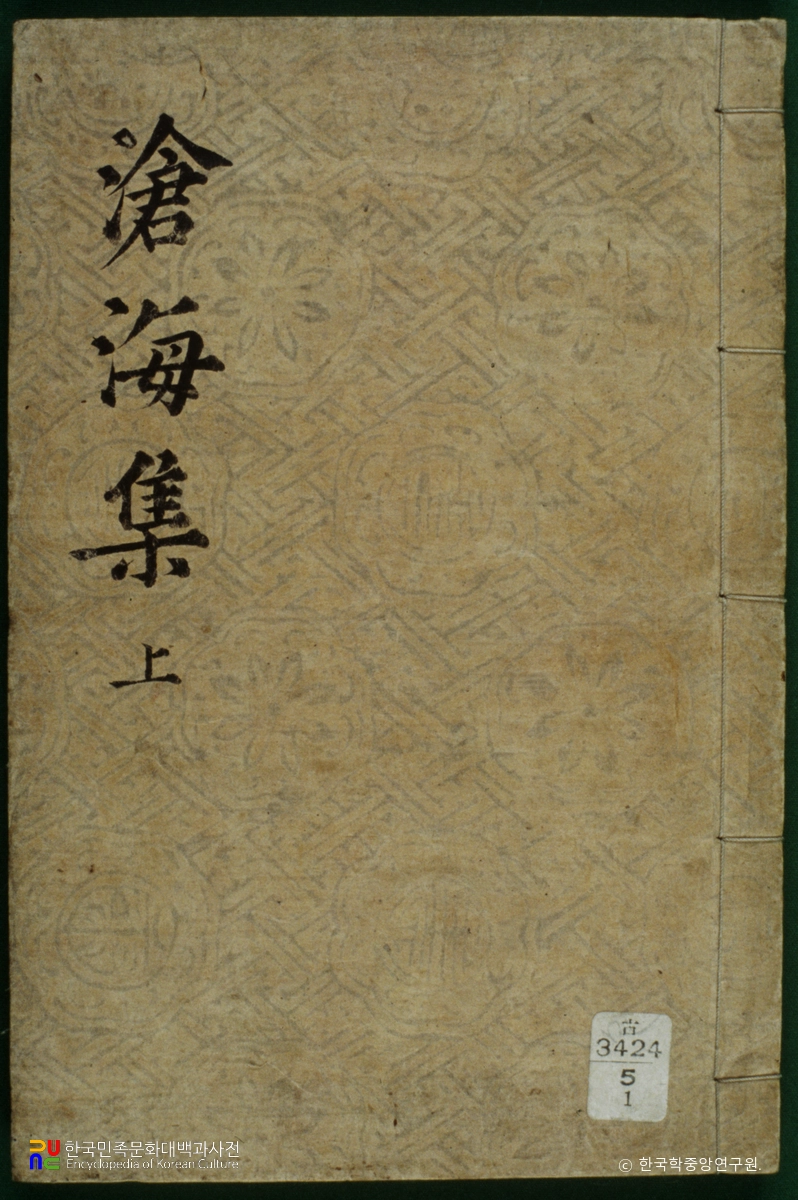 滄海集
上
古
3424
5
1
한국민족문화대백과사전
Encyclopedia of Korean Culture
© 한국학중앙연구원.